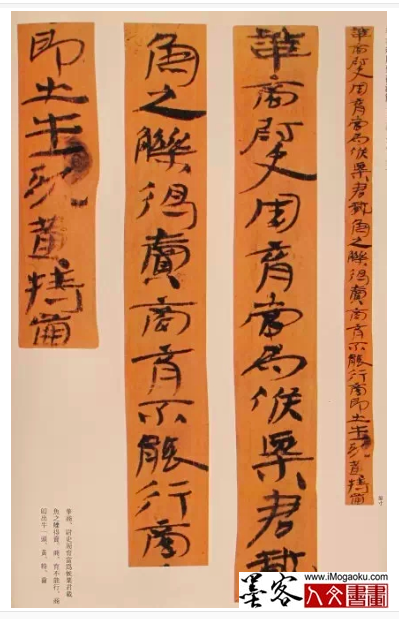 華商尉史周育當為候粟君載魚之觻得賣商育不能行商即出牛一頭黃特齒
原寸
華商尉史周育當為候粟君載
魚之觻得賣商育不能行商
即出牛一頭黃特齒
華商、尉史周育當爲候粟君載
魚之觻得賣。商、育不能行。商
即出牛一頭,黃、特、齒
墨客
www.iMogaoku.com
人文書畫